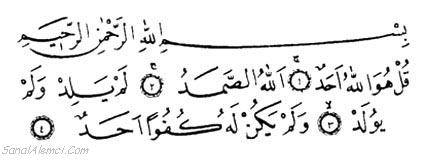 بِسْمِ اللهِ الرَّحْمٰنِ الرَّحِيمِ
قُلْ هُوَ اللهُ اَحَدٌ ﴿١﴾ اَللهُ الصَّمَدُ ﴿٢﴾ لَمْ يَلِدْ وَلَمْ
يُولَدْ ﴿٣﴾ وَلَمْ يَكُنْ لَهُ كُفُوًا اَحَدٌ ﴿٤﴾
SanalAlemci.Com